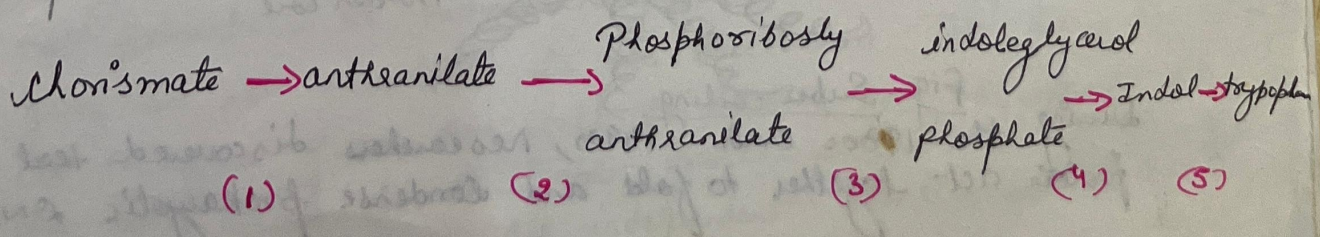 Chorismate → anthranilate → Phosphoribosly anthranilate → indoleglycerol phosphate → Indol → trypophan
(1) (2) (3) (4) (5)